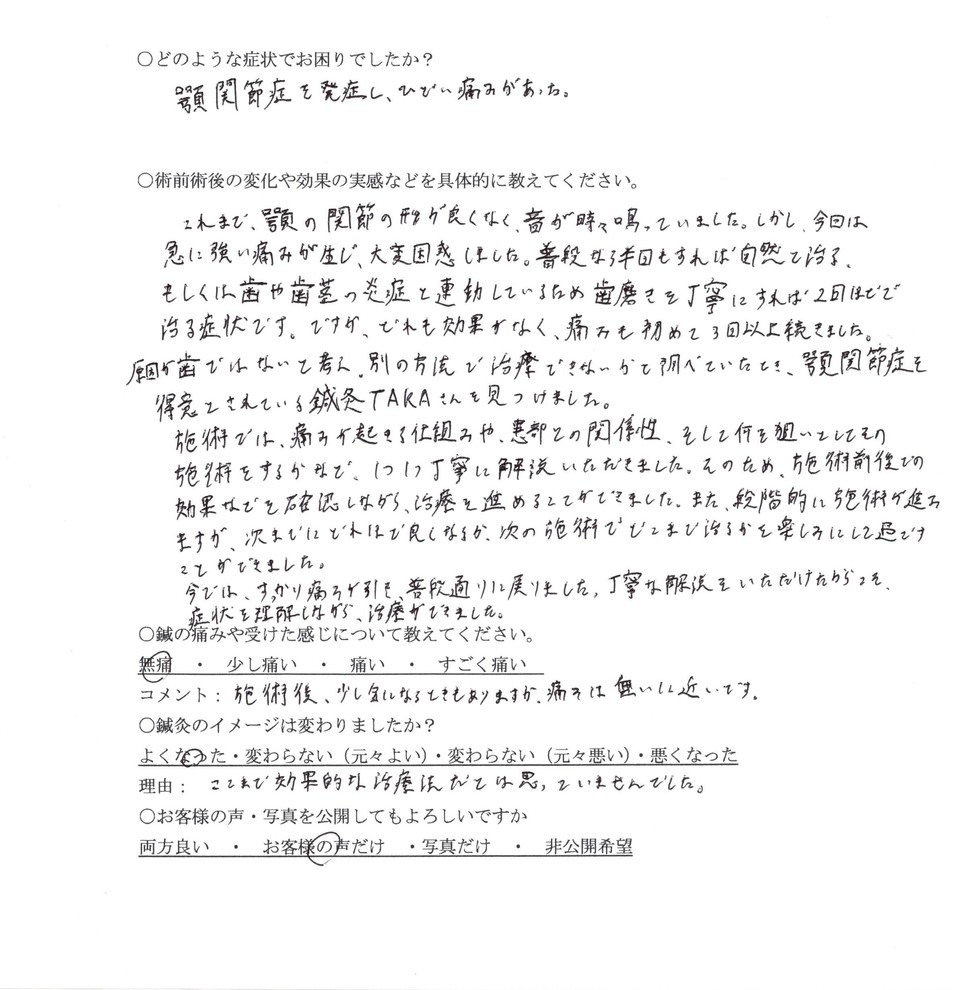 ○どのような症状でお困りでしたか？
顎関節症を発症し、ひどい痛みがあった。
○術前術後の変化や効果の実感などを具体的に教えてください。
これまで、顎の関節の形が良くなく、音が時々鳴っていました。しかし、今回は
急に強い痛みが生じ、大変困惑しました。普段なら半日もすれば自然と治る、
もしくは歯や歯茎の炎症と連動しているため歯磨きを丁寧にすれば2回ほどで
治る症状です。ですが、どれも効果がなく、痛みも初めて3回以上続きました。
原因が歯ではないと考え、別の方法で治療できないかと調べていたとき、顎関節症を
得意とされている鍼灸TAKAさんを見つけました。
施術では、痛みが起きる仕組みや、患部との関係性、そして何を狙いとしてその
施術をするかなど、1つ1つ丁寧に解説いただきました。そのため、施術前後での
効果などを確認しながら、治療を進めることができました。また、段階的に施術が進み
ますが、次までにどれほど良くなるか、次の施術でどこまで治るかを楽しみにして過ごす
ことができました。
今では、すっかり痛みが引き、普段通りに戻りました。丁寧な解説をいただけたからこそ、
症状を理解しながら、治療ができました。
○鍼の痛みや受けた感じについて教えてください。
無痛　・　少し痛い　・　痛い　・　すごく痛い
コメント： 施術後、少し気になるときもありますが、痛みは無いに近いです。
○鍼灸のイメージは変わりましたか？
よくなった・変わらない（元々よい）・変わらない（元々悪い）・悪くなった
理由： ここまで効果的な治療法だとは思っていませんでした。
○お客様の声・写真を公開してもよろしいですか
両方良い　・　お客様の声だけ　・写真だけ　・　非公開希望